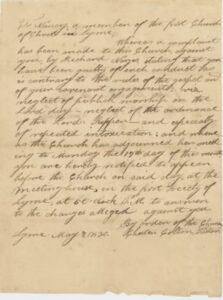 To Nancy, a member of the first Church
of Christ in Lyme,
Whereas a complaint
has been made to this Church against
you, by Richard Noyes stating that you
have been guilty of such conduct as
is contrary to the rules of the gospel and
of your covenant engagements, viz.
neglect of publick worship on the
Lord's day & neglect of the ordinance
of the Lord's Supper and especially
of repeated intoxication; and where-
as the Church has adjourned her meet-
ing to Monday the 10th day of
you are hereby notified to appear
before the Church on said day, at the
meeting house, in the first Society of
Lyme, at 5 o'clock P.M. to answer
to the charges alleged against you.
By order of the Church
Lyme May